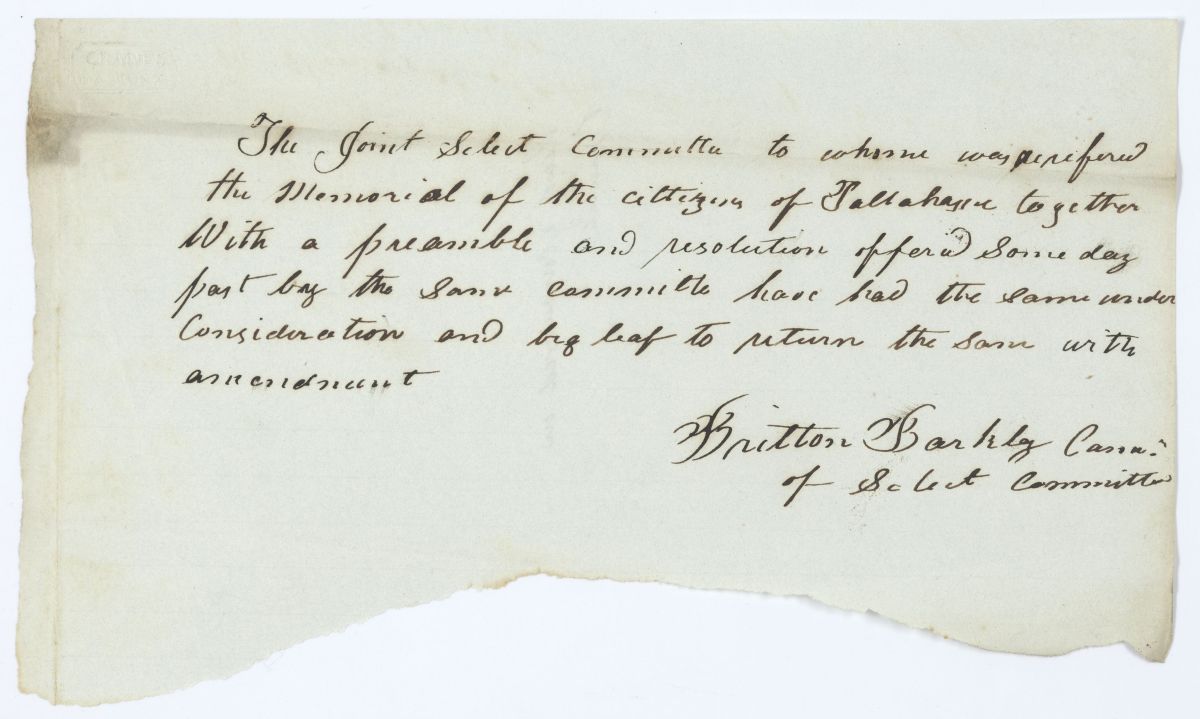 The Joint Select Committe to whome was rerefered
the Memorial of the cittizens of Tallahassee together
With a preamble and resolution offered some day
past by the same committe have had the same under
Consideration and beg leaf to return the same with
amendmant
Britton Barkley
of Select Committee